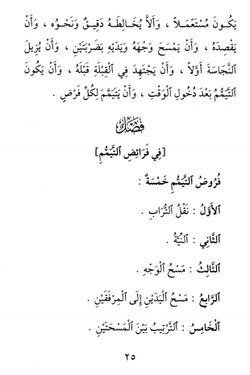 يَكُونَ مُسْتَعْمَلاً ، وَأَلاَّ يُخَالِطَهُ دَقِيقٌ وَنَحْوُهُ ، وَأَنْ
يَقْصِدَهُ ، وَأَنْ يَمْسَحَ وَجْهَهُ وَيَدَيْهِ بِضَرْبَتَيْنِ ، وَأَنْ يُزِيلَ
ٱلنَّجَاسَةَ أَوَّلاً ، وَأَنْ يَجْتَهِدَ فِي ٱلْقِبْلَةِ قَبْلَهُ ، وَأَنْ يَكُونَ
ٱلتَّيَمُّمُ بَعْدَ دُخُولِ ٱلْوَقْتِ ، وَأَنْ يَتَيَمَّمَ لِكُلِّ فَرْضٍ .
فَصْلٌ
[فِي فَرَائِضِ ٱلتَّيَمُّمِ]
فُرُوضُ ٱلتَّيَمُّمِ خَمْسَةٌ :
ٱلأَوَّلُ : نَقْلُ ٱلتُّرَابِ .
ٱلثَّانِي : ٱلنِّيَّةُ .
ٱلثَّالِثُ : مَسْحُ ٱلْوَجْهِ .
ٱلرَّابِعُ : مَسْحُ ٱلْيَدَيْنِ إِلَى ٱلْمِرْفَقَيْنِ .
ٱلْخَامِسُ : ٱلتَّرْتِيبُ بَيْنَ ٱلْمَسْحَتَيْنِ .
٢٥